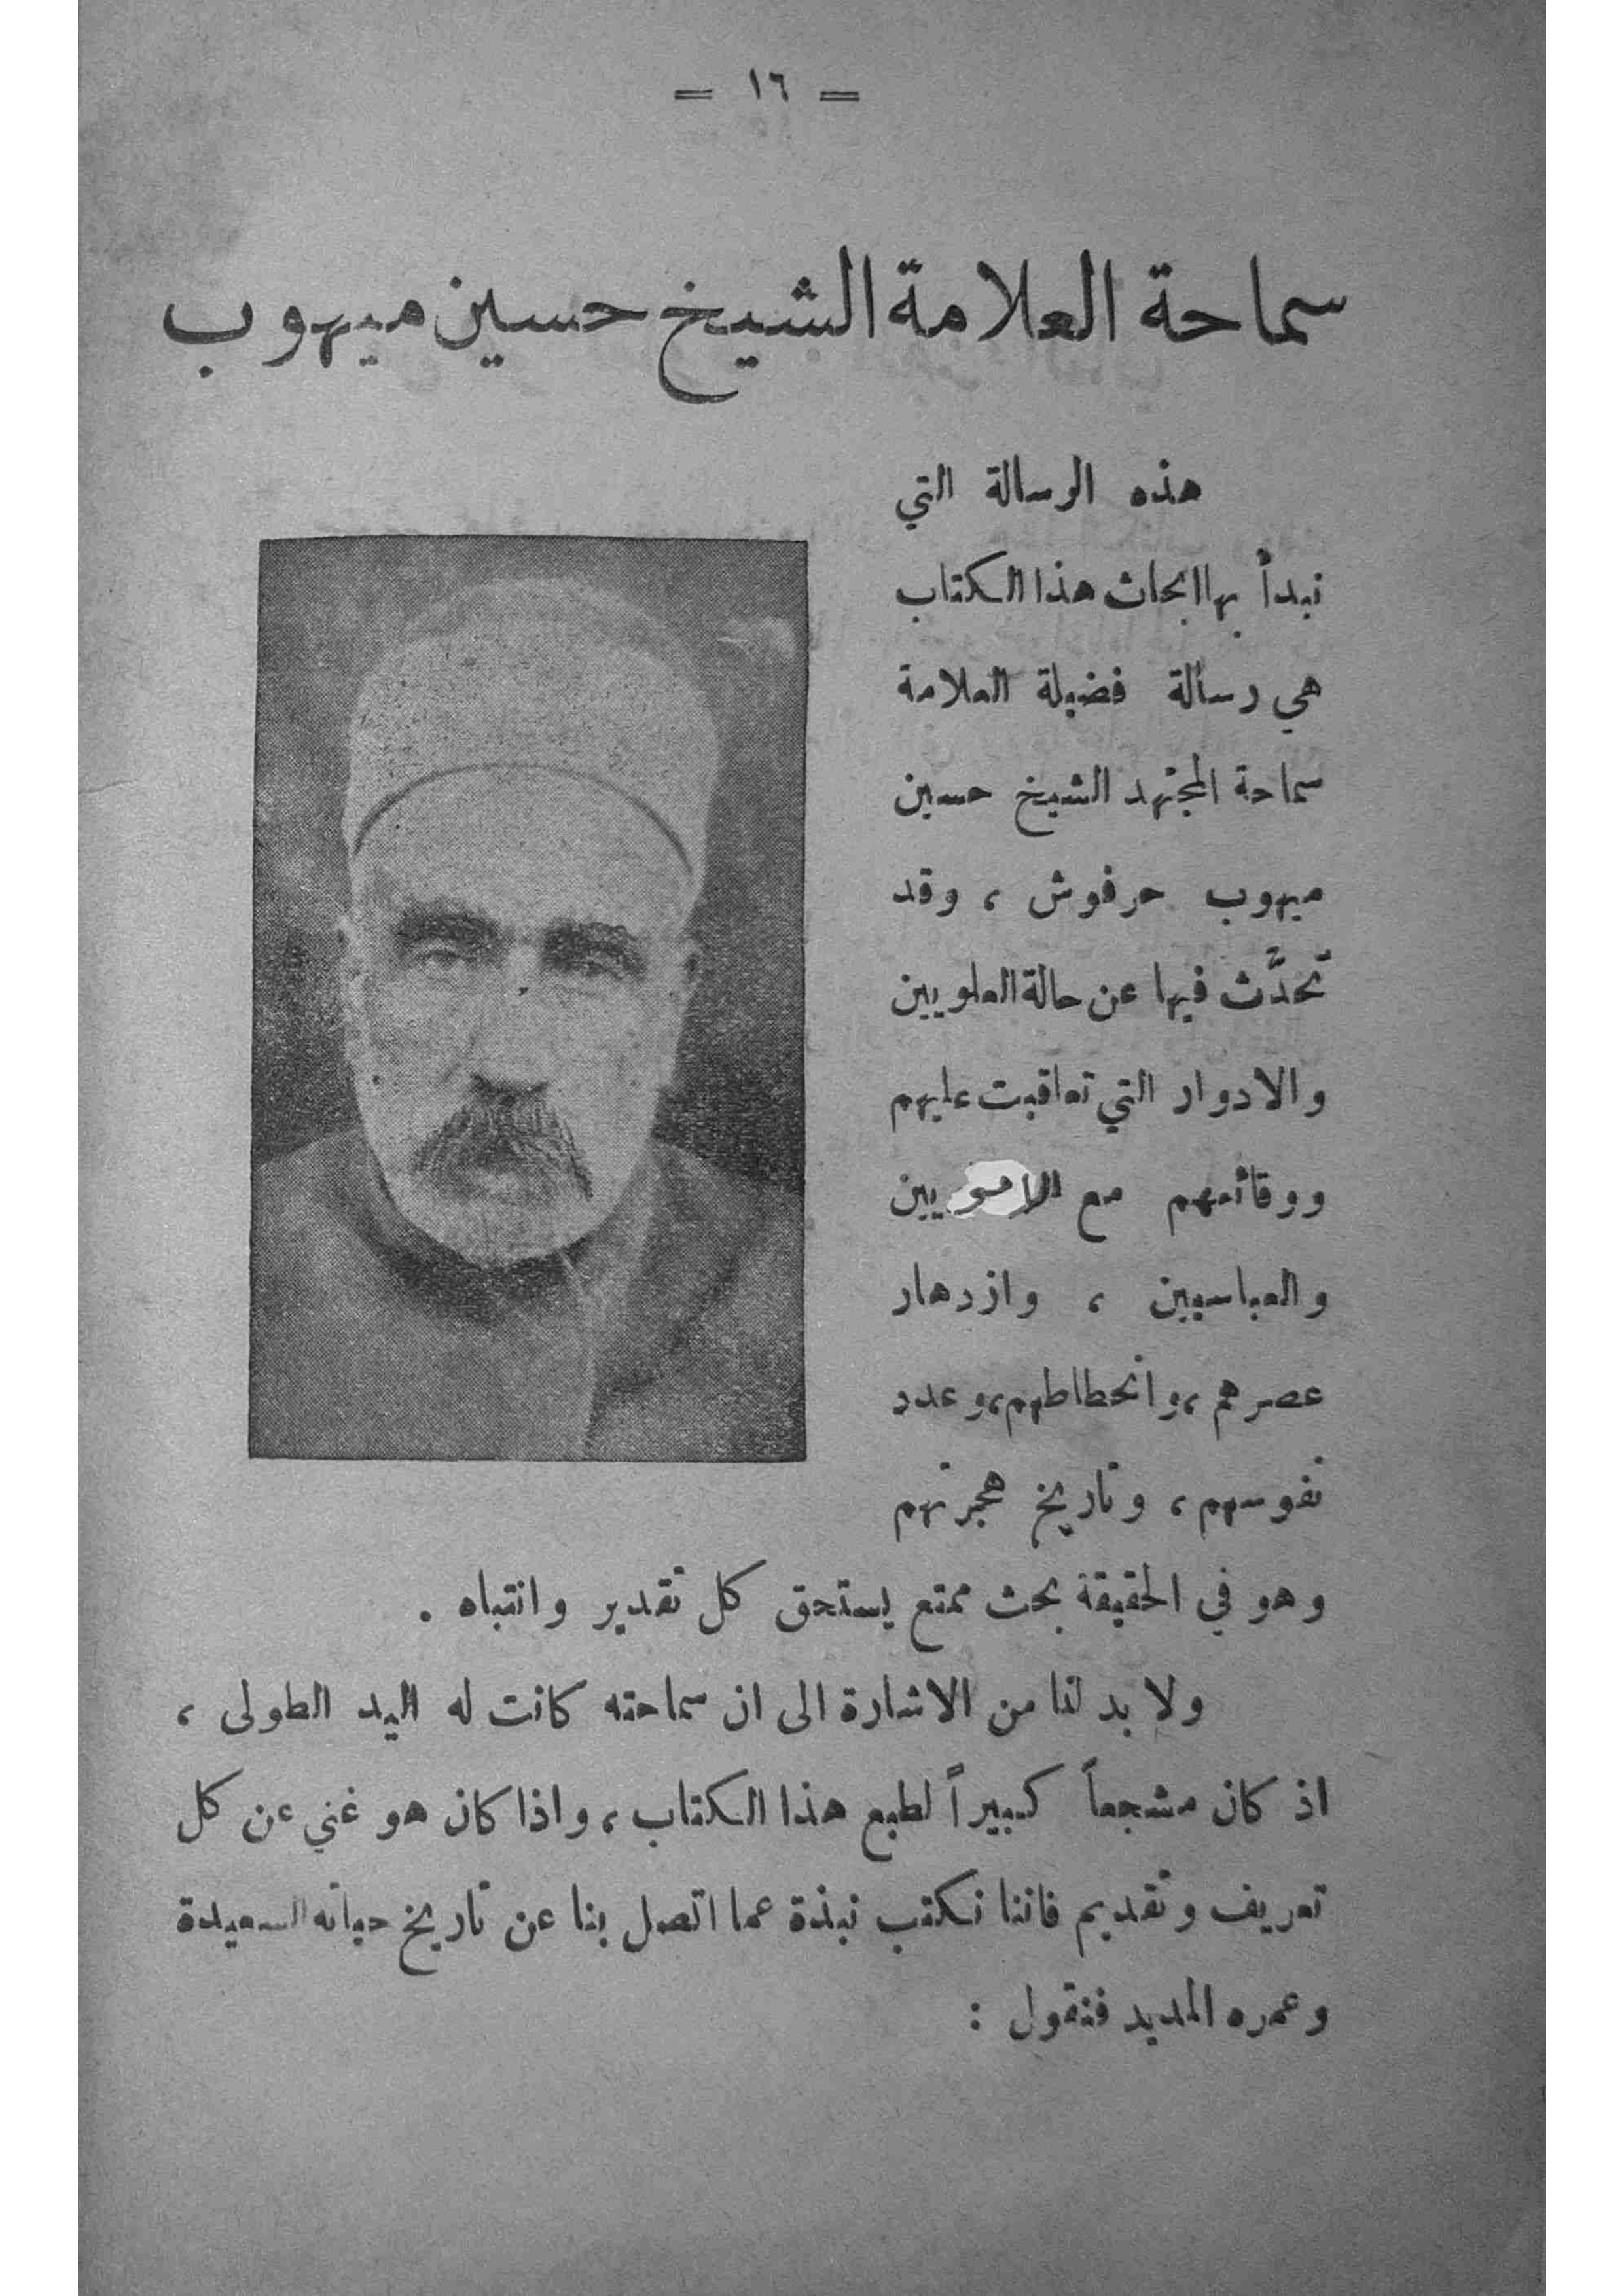 = ١٦ =
سماحة العلامة الشيخ حسين ميهوب
هذه الرسالة التي
نبدأ بها ابحاث هذا الكتاب
هي رسالة فضيلة العلامة
سماحة المجتهد الشيخ حسين
ميهوب حرفوش ، وقد
تحدَّث فيها عن حالة العلويين
والادوار التي تعاقبت عليهم
ووقائعهم مع الامويين
والعباسيين ، وازدهار
عصرهم ، وانحطاطهم ، وعدد
نفوسهم ، وتاريخ هجرتهم
وهو في الحقيقة بحث ممتع يستحق كل تقدير وانتباه .
ولا بد لنا من الاشارة الى ان سماحته كانت له اليد الطولى ،
اذ كان مشجعاً كبيراً لطبع هذا الكتاب ، واذا كان هو غني عن كل
تعريف وتقديم فاننا نكتب نبذة عما اتصل بنا عن تاريخ حياته السعيدة
وعمره المديد فنقول :